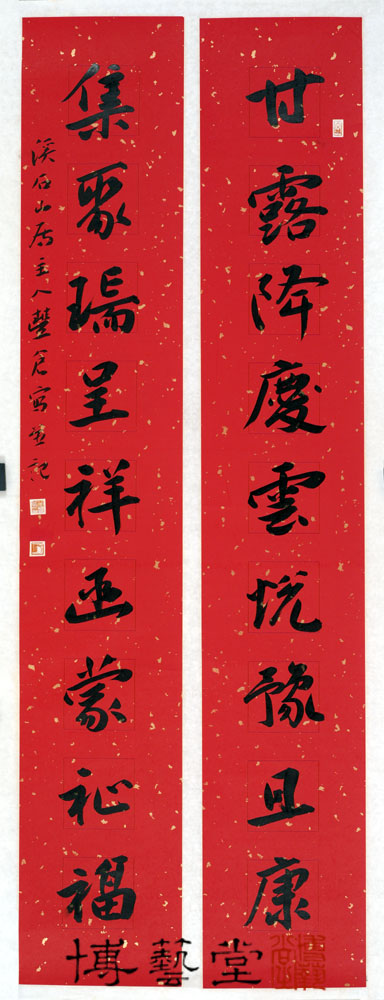 甘露降慶雲悅豫且康
集聚瑞呈祥亟蒙祉福
溪石山房主人豐倉寫並記
博藝堂